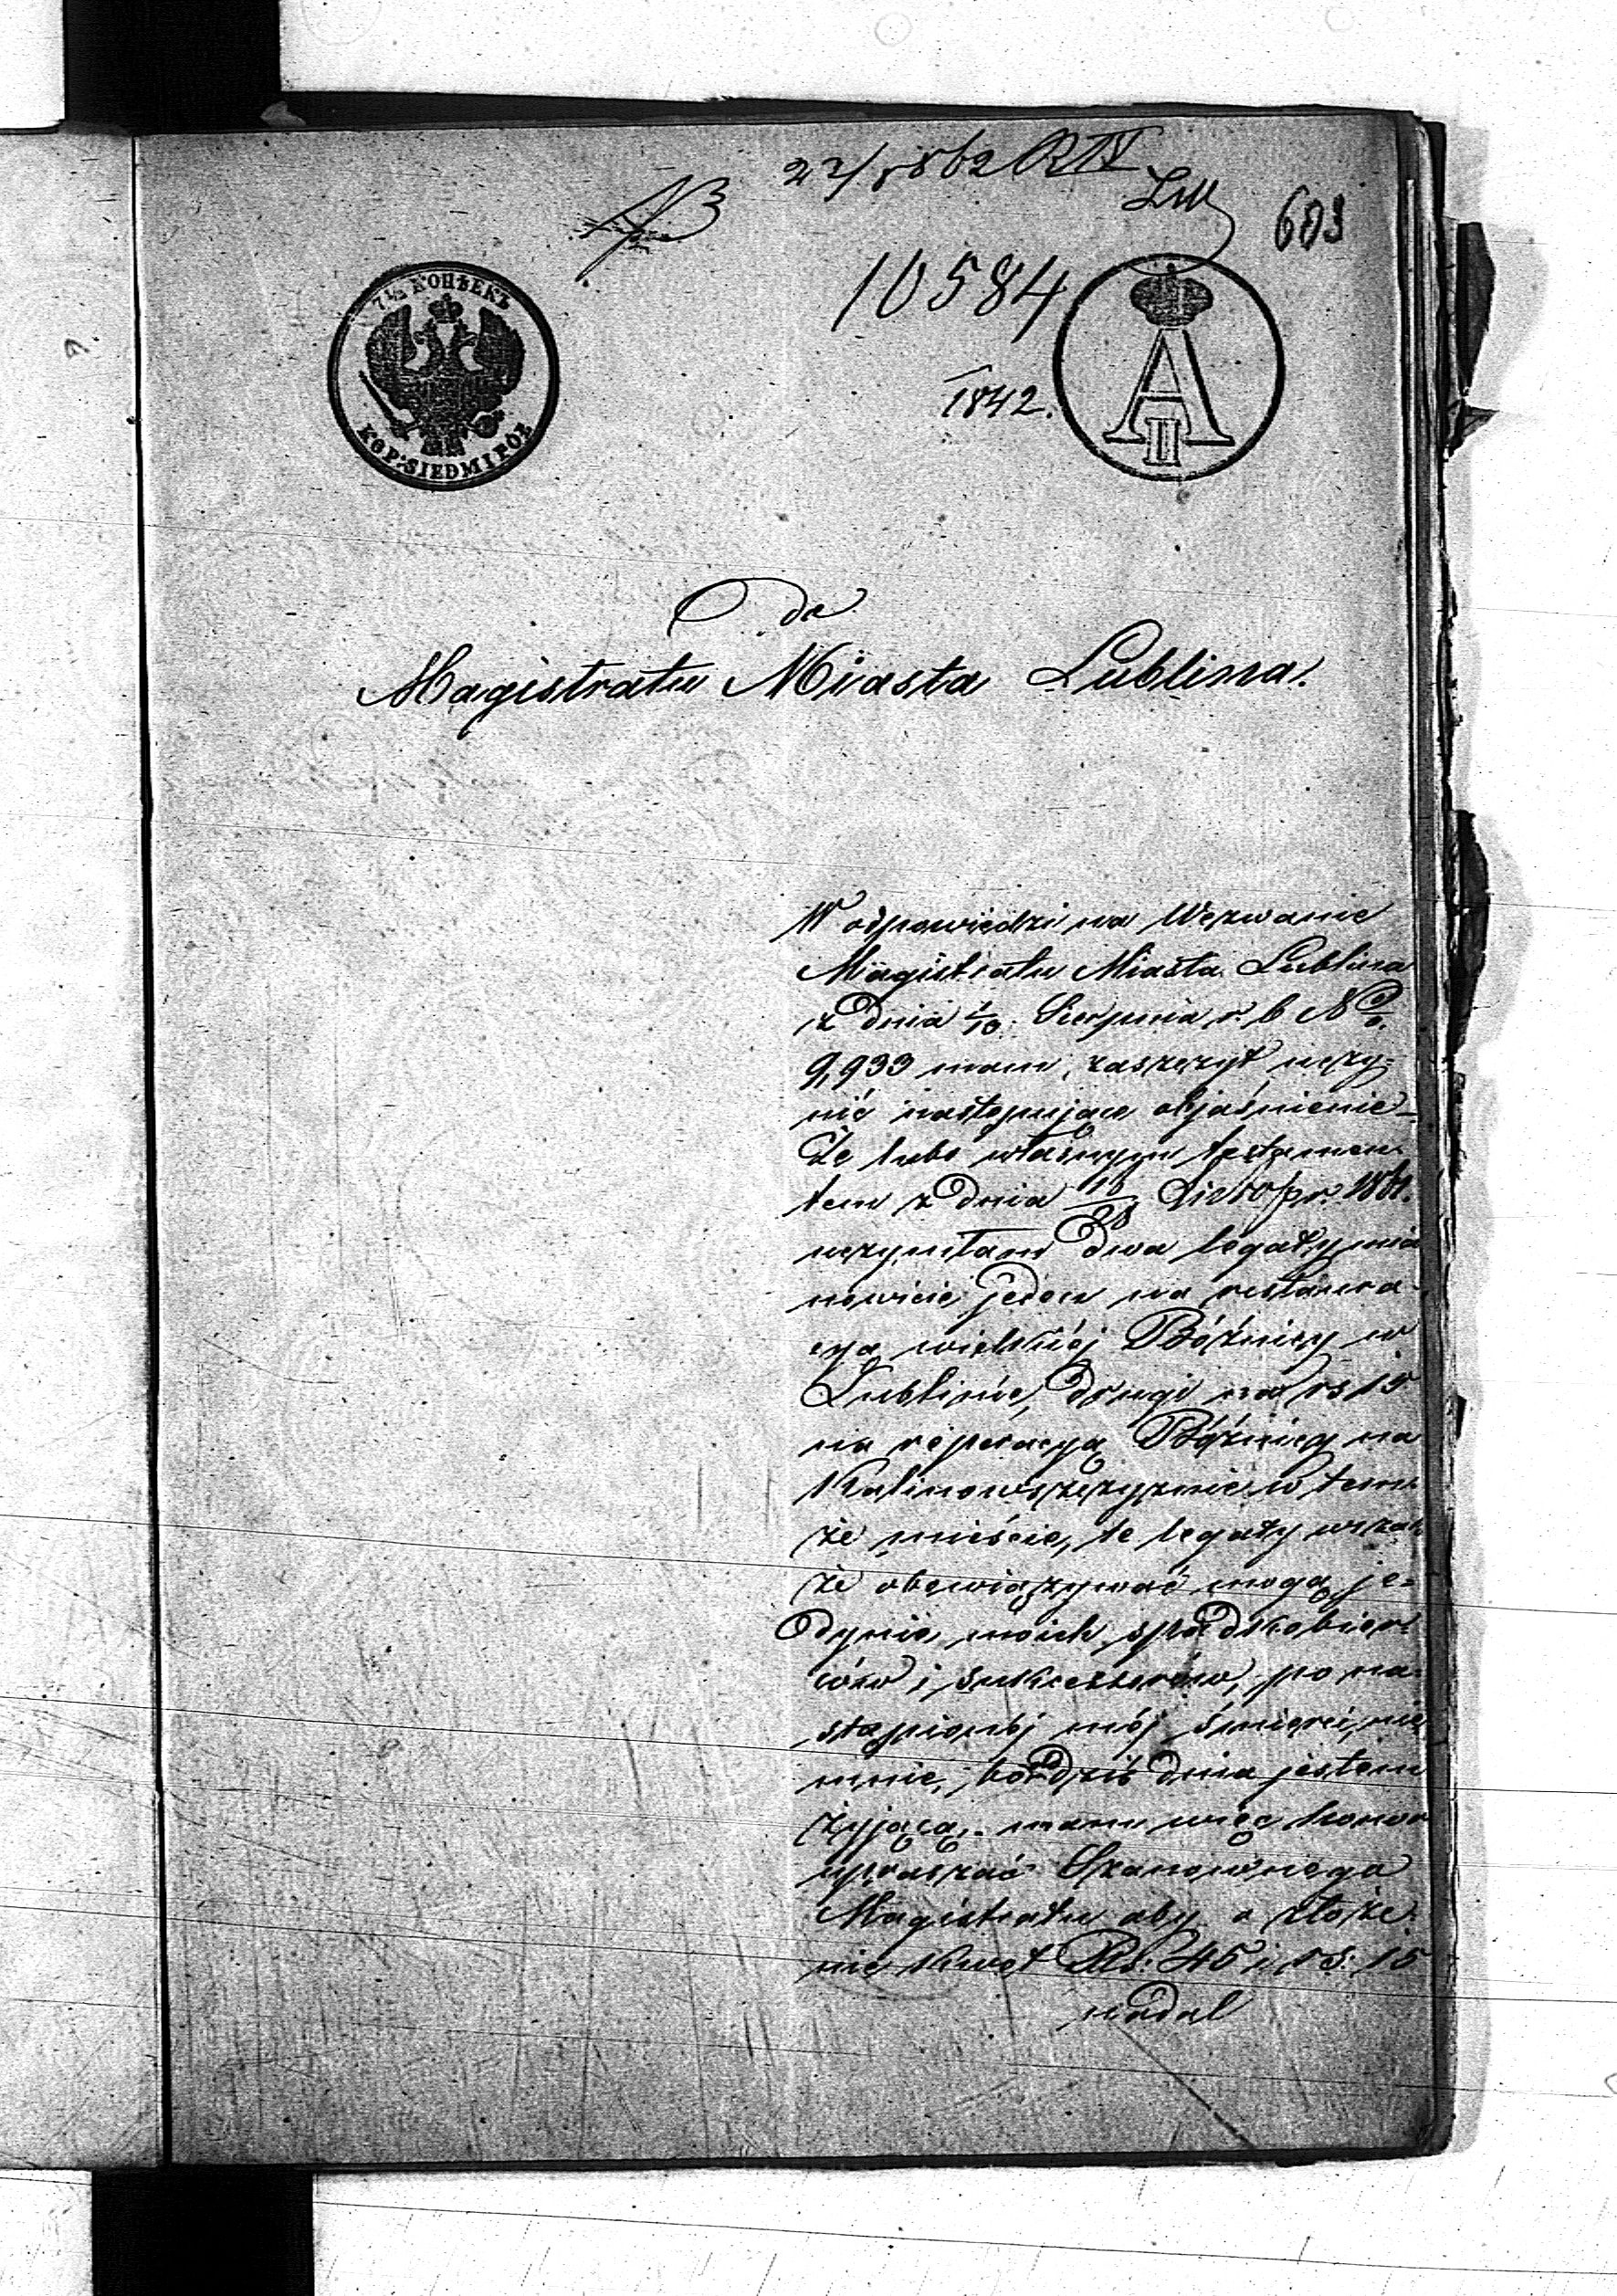 22/8 862 R IV
603
10584
1842.
7½ КОПѢЕКЪ
KOP: SIEDM I PÓŁ
A II
Do
Magistratu Miasta Lublina.
W odpowiedzi na Wezwanie
Magistratu Miasta Lublina
z dnia Sierpnia r. b No
9,933 mam zaszczyt uczy=
nić następujące objaśnienie
Że lubo własnym testamen
tem z dnia 16/28 1861.
uczyniłam dwa legaty mia
nowicie jeden na restaura-
cyą wielkiéj Bóżnicy w
Lublinie, drugi na rs 15
na reperacyą Bóżnicy na
Kalinowszczyznie w tem
że mieście, te legaty wszak
że obowiązywać mogą je=
dynie moich spadkobier
ców i sukcessorów, po na-
stąpionéj méj śmierci, nie
mnie, bo dziś dnia jestem
żyjącą, mam więc honor
upraszać Szanownego
Magistratu aby o złoże
nie kwot Rs. 45 i rs. 15
nadal